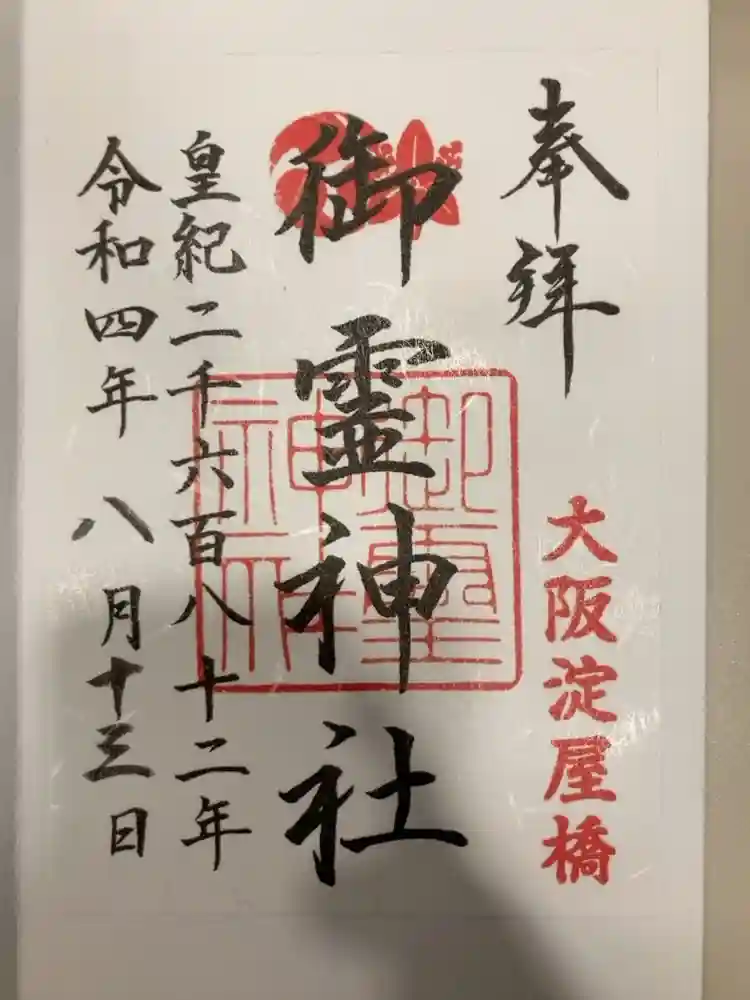 奉拝
大阪淀屋橋
御霊神社
御霊神社
皇紀二千六百八十二年
令和四年 八月十三日